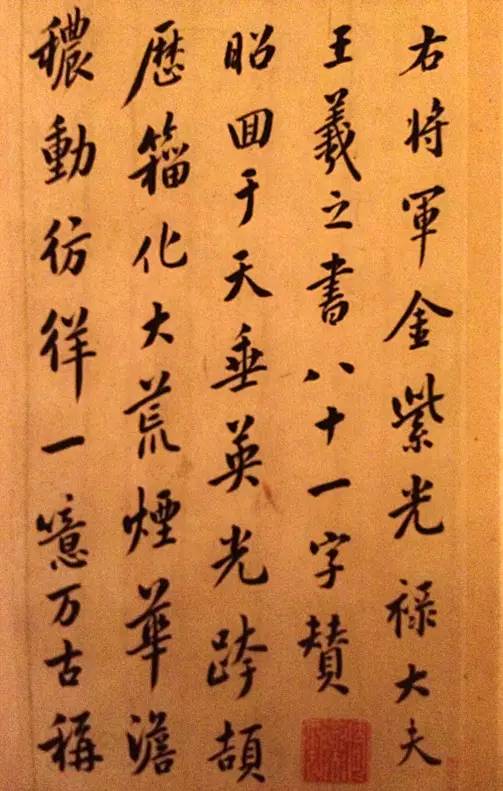 右将軍金紫光禄大夫
王羲之書八十一字賛
昭囬于天垂英光跨頡
歷籀化大荒煙華澹
穠動彷徉一噫万古稱